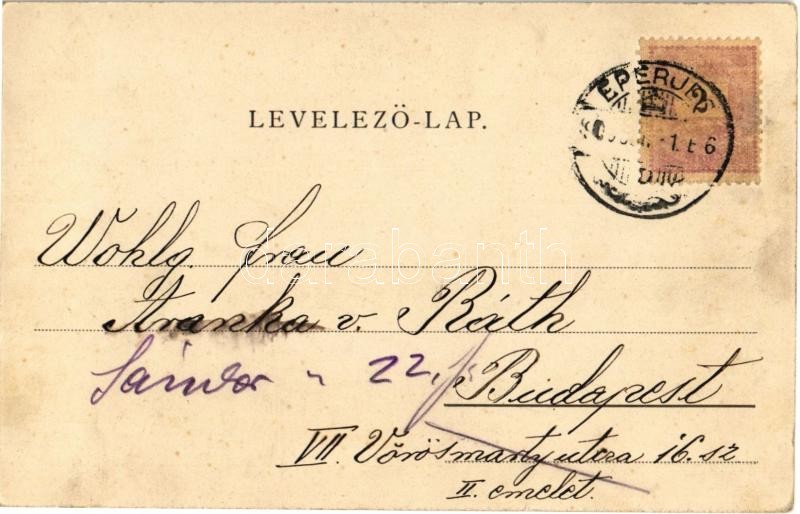 LEVELEZŐ-LAP.
EPERJES
Wohlg. Frau
Aranka v. Ráth
Sándor u 22.
Budapest
VII. Vörösmarty utcza 16. sz
II. emelet.
darabanth